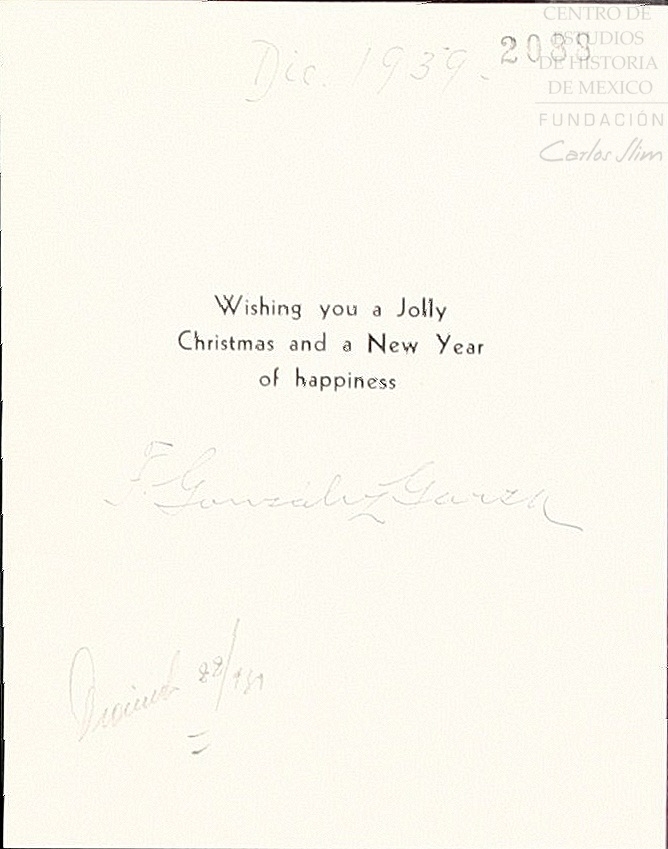 Dic. 1939.
2033
CENTRO DE
ESTUDIOS
DE HISTORIA
DE MEXICO
FUNDACIÓN
Carlos Slim
Wishing you a Jolly
Christmas and a New Year
of happiness
F. González Garza
22/939